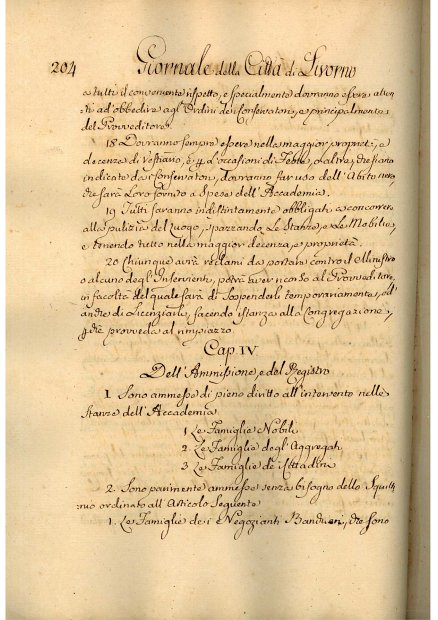 204 Giornale della Città di Livorno
a tutti il conveniente rispetto, e specialmente dovranno essere
ad obbedire agl'Ordini dei Conservatori, e principalmente
del Provveditore.
18 Dovranno sempre essere nella maggior propriet. e
decenza di vestiario, e 4. occasioni di Feste, o altre, che siano
indicate da i Conservatori, dovranno far uso dell'Abito nero,
che sarà Loro fornito a spese dell'Accademia.
19 Tutti saranno indistintamente obbligati a concorrere
alla pulizia del Luogo, spazzando Le Stanze, e Le Mobilie,
e tenendo tutto nella maggior decenza, e proprietà.
20 Chiunque avrà reclami da portare contro il Ministro
o alcuno degl'Inservienti, potrà aver ricorso al Provveditore,
in facoltà del quale sarà di sospenderli temporariamente, ed
anche di Licenziarli, facendo istanza alla Congregazione,
che provveda al rimpiazzo.
Cap. IV
Dell'Ammissione, e del Registro
1. Sono ammesse di pieno diritto all'intervento nelle
Stanze dell'Accademia
1 Le Famiglie Nobili
2. Le Famiglie degl'Aggregati
3 Le Famiglie de Cittadini
2. Sono parimente ammesse senza bisogno dello Squitti-
nio ordinato all'Articolo Seguente
1. Le Famiglie de i Negozianti Banchieri, che sono